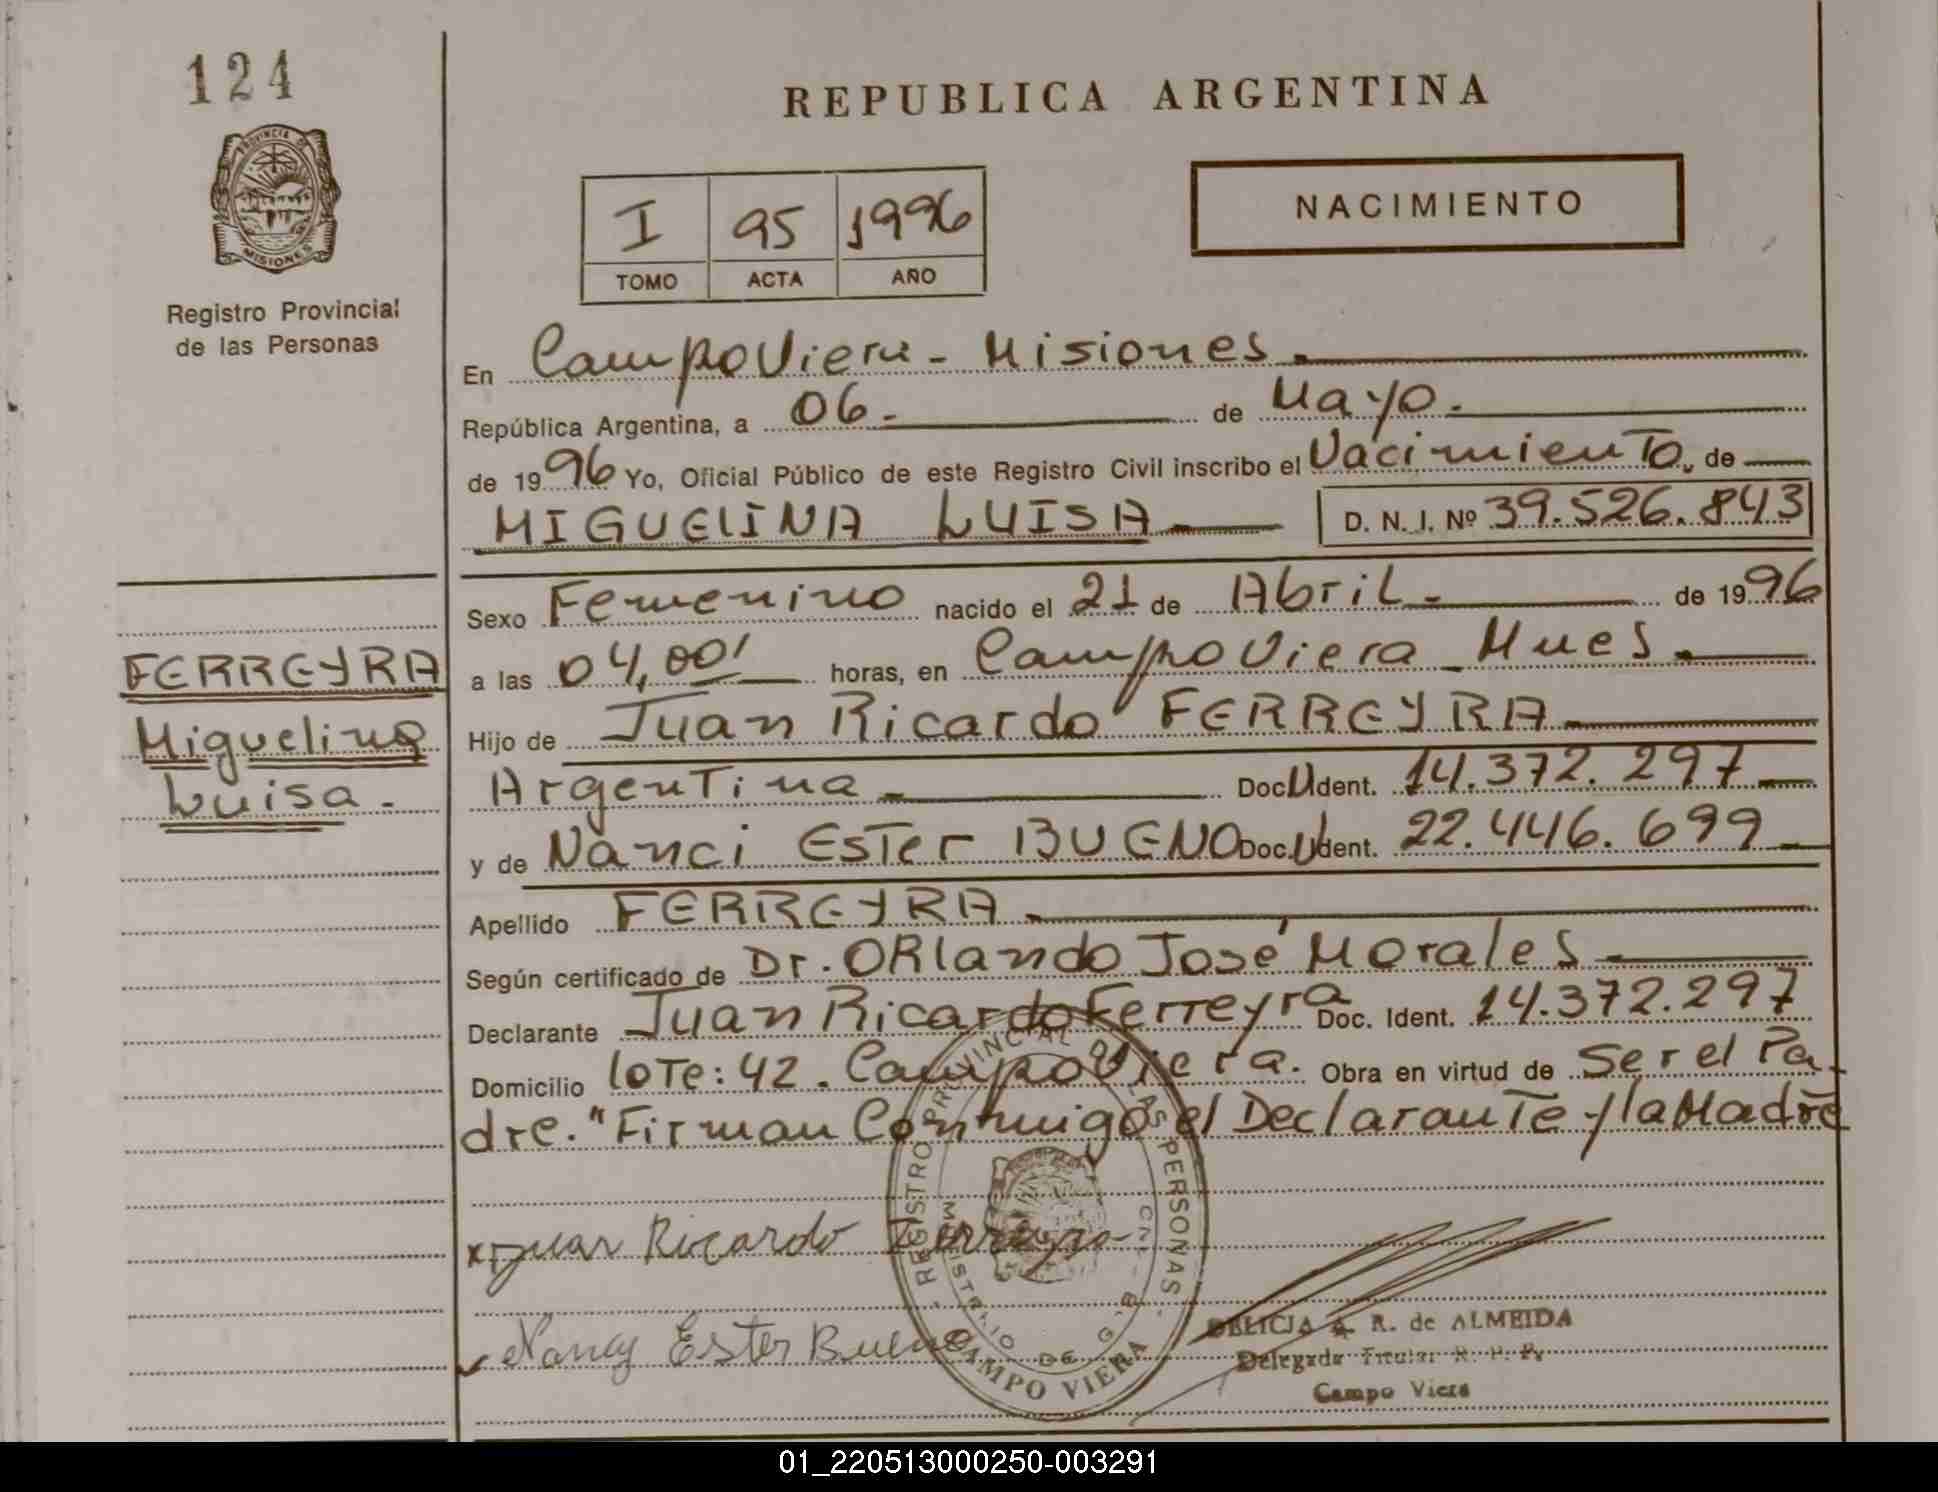 124
PROVINCIA DE
MISIONES
Registro Provincial
de las Personas
REPUBLICA ARGENTINA
I 95 1996
TOMO ACTA AÑO
NACIMIENTO
En Campo Viera - Misiones.
República Argentina, a 06. de Mayo.
de 1996 Yo, Oficial Público de este Registro Civil inscribo el Nacimiento, de
MIGUELINA LUISA D. N. I. Nº 39.526.843
Sexo Femenino nacido el 21 de Abril. de 1996
a las 04,00' horas, en Campo Viera Mnes.
Hijo de Juan Ricardo FERREYRA
Argentina Doc U Ident. 14.372.297
y de Nanci Ester BUENO Doc. U Ident. 22.446.699
Apellido FERREYRA
Según certificado de Dr. ORlando José Morales
Declarante Juan Ricardo Ferreyra Doc. Ident. 14.372.297
Domicilio lote: 42. Campo Viera. Obra en virtud de Ser el Pa-
dre. "Firman Conmigo el Declarante y la Madre
FERREYRA
Miguelina
Luisa.
x Juan Ricardo Ferreyra
Nancy Ester Bueno
REGISTRO PROVINCIAL DE LAS PERSONAS
MINISTERIO DE G.
CAMPO VIERA
DELICIA A. R. de ALMEIDA
Delegada Titular R. P. P.
Campo Viera
01_220513000250-003291